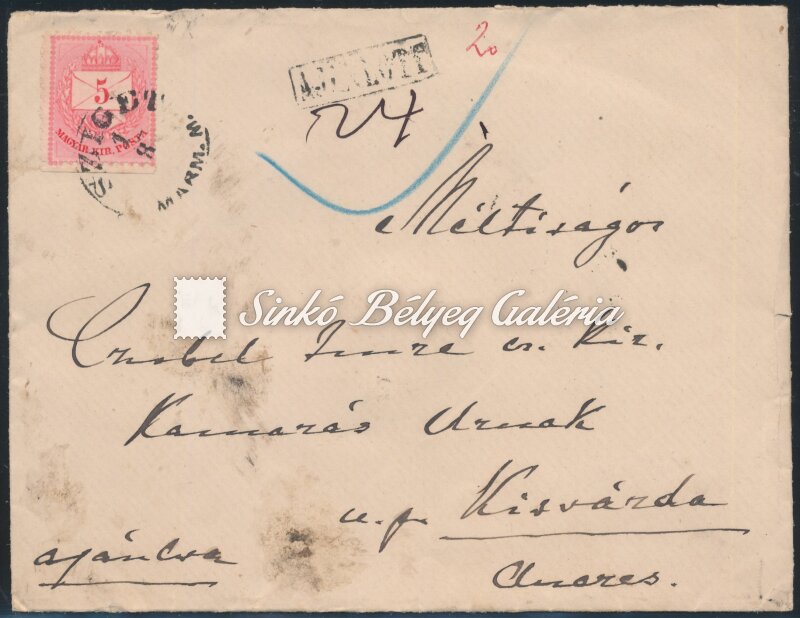 20
5
MAGYAR KIR. POSTA
SZIGET
MARM. M.
AJÁNLOTT
24
Méltóságos
Sinkó Bélyeg Galéria
Imre cs. Kir.
Kamarás Urnak
u.p. Kisvárda
ajánlva